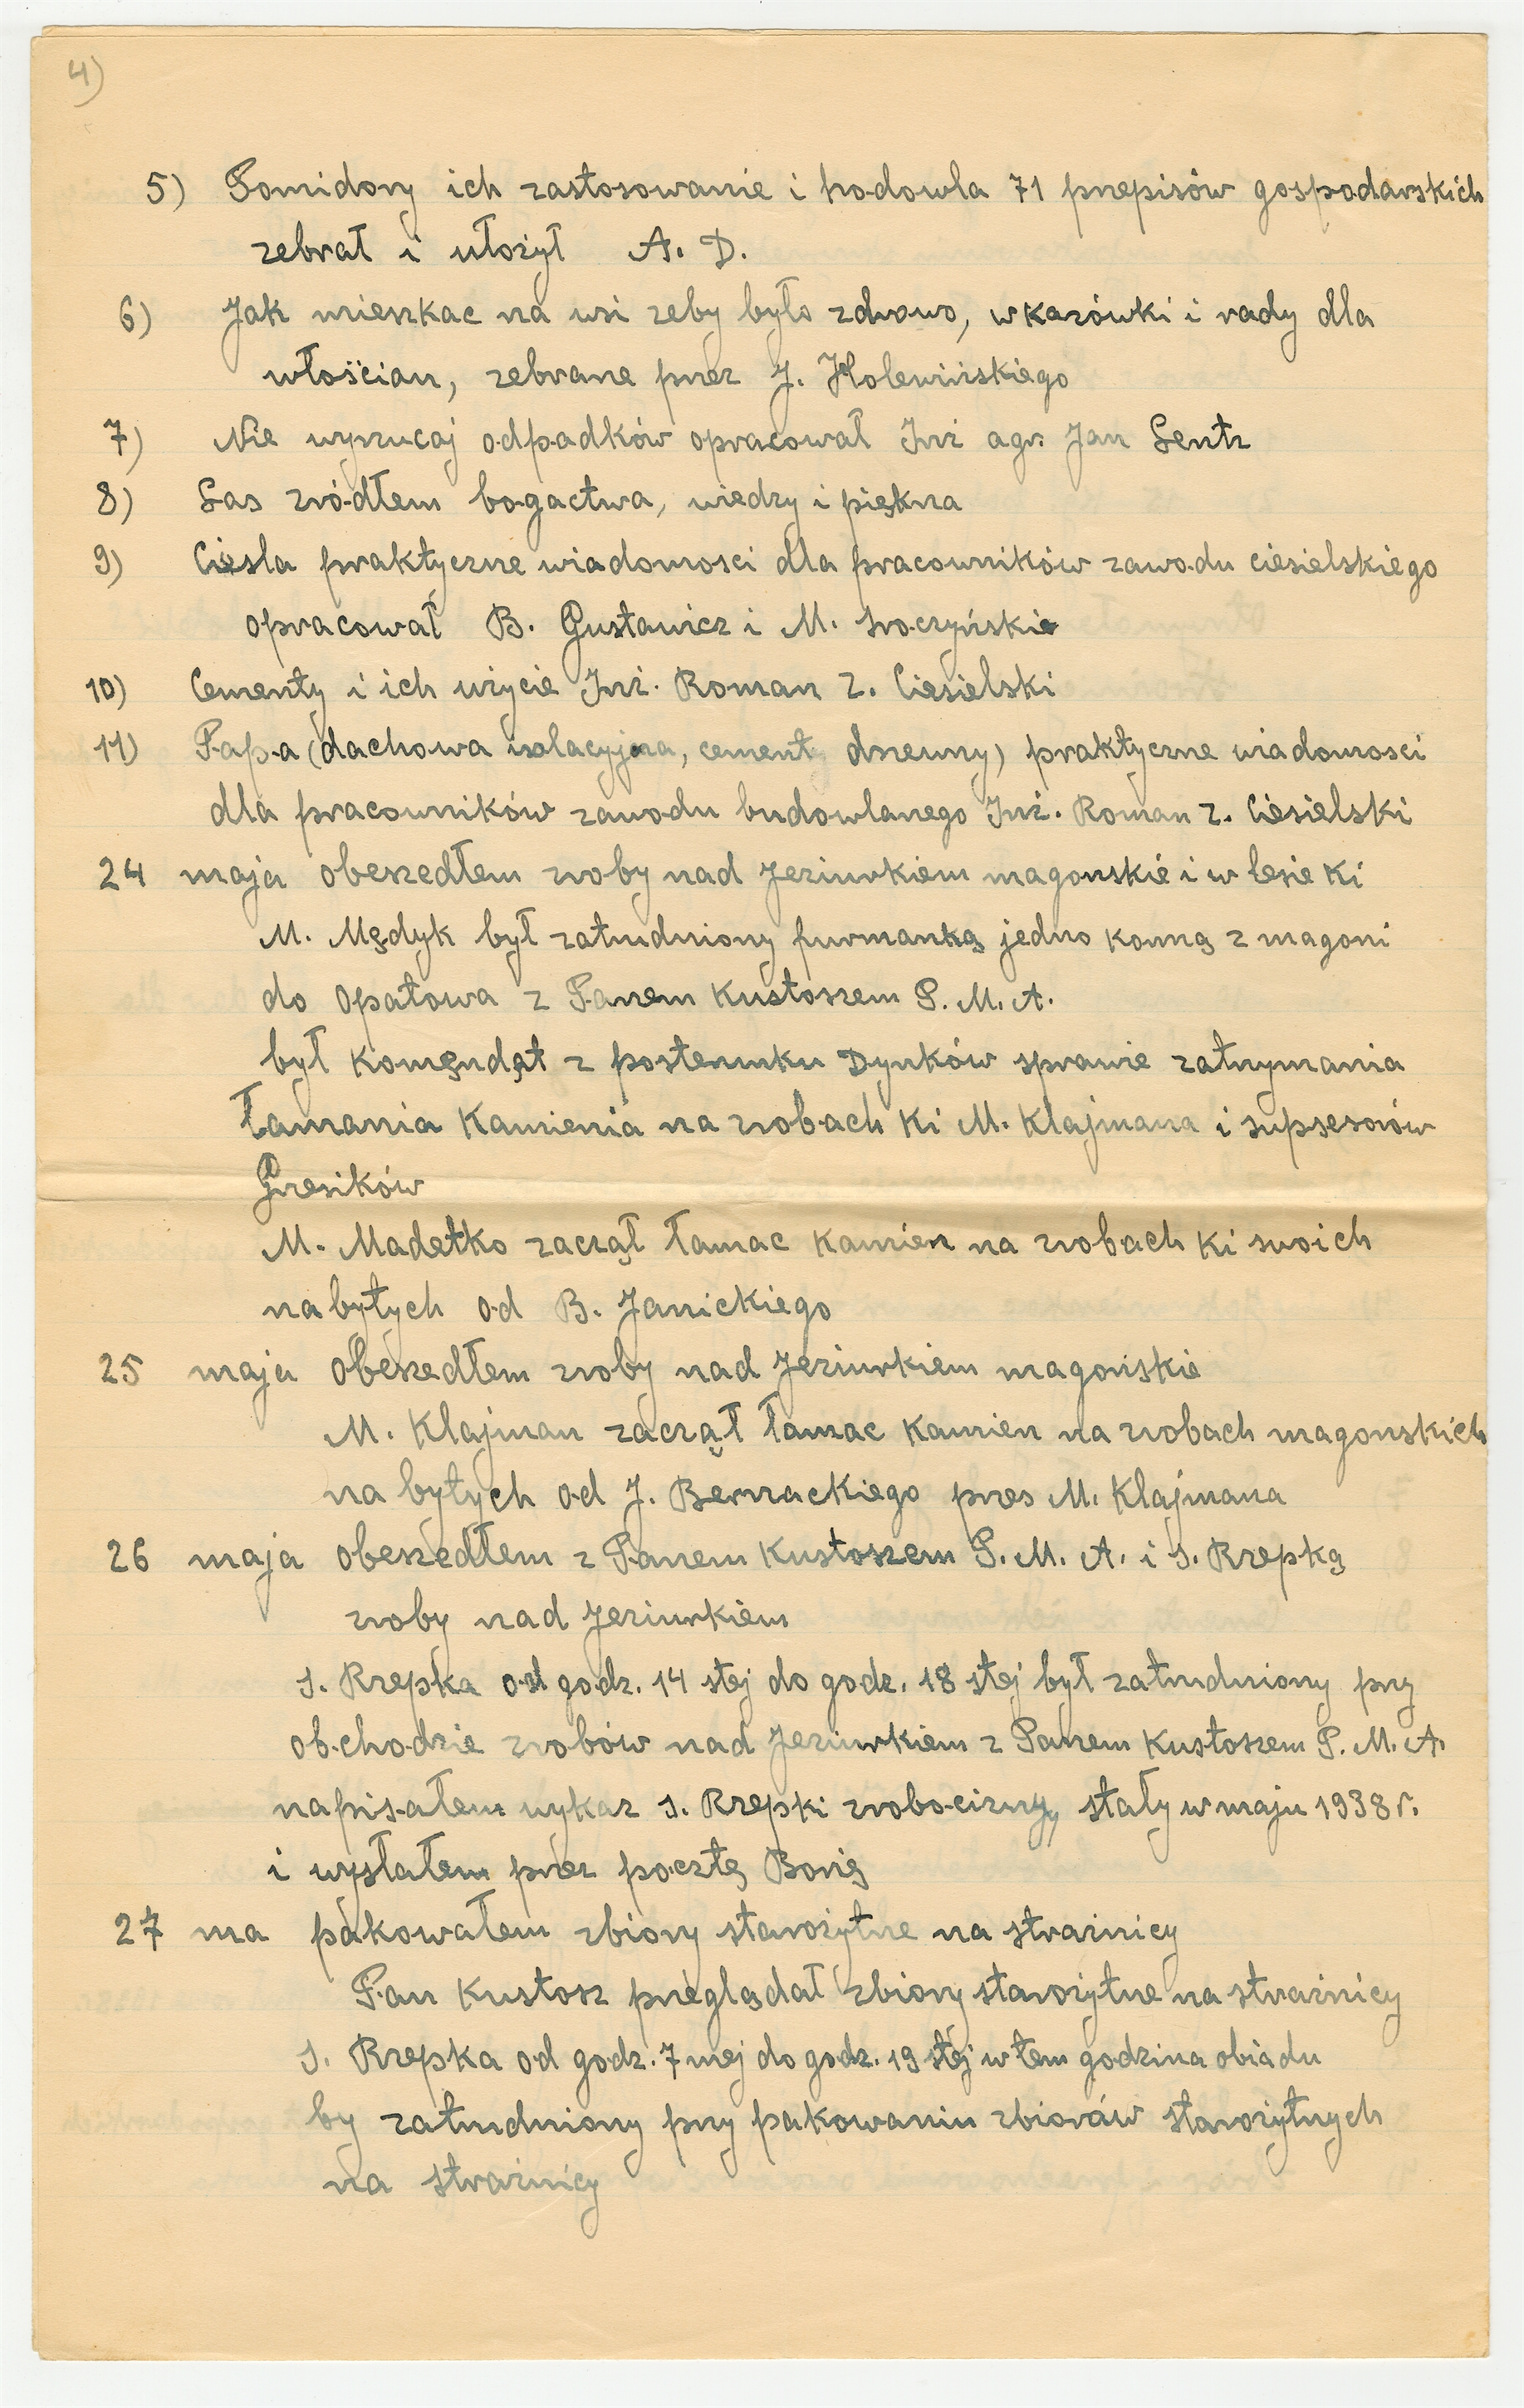 4)
5) Pomidory ich zastosowanie i hodowla 71 przepisów gospodarskich
zebrał i ułożył A. D.
6) Jak mieszkac na wsi zeby było zdrowo, wkazówki i rady dla
włościan, zebrane przez J. Holewińskiego
7) Nie wyrzucaj odpadków opracował Inż agr. Jan Lentz
8) Las zródłem bogactwa, wiedzy i piękna
9) Ciesla praktyczne wiadomosci dla pracowników zawodu ciesielskiego
opracował B. Gustawicz i M. Sroczyński
10) Cementy i ich użycie Inż. Roman z. Ciesielski
11) Papa (dachowa izolacyjna, cement drzewny) praktyczne wiadomosci
dla pracowników zawodu budowlanego Inż. Roman z. Ciesielski
24 maja obeszedłem zroby nad Jeziurkiem magonskie i w lesie Ki
M. Mędyk był zatrudniony furmanką jedno konną z magoni
do Opatowa z Panem Kustoszem P. M. A.
był Komęndąt z posterunku Dynków sprawie zatrzymania
łamania Kamienia na zrobach Ki M. Klajmana i supsesorów
Grzesików
M. Madetko zaczął łamac Kamien na zrobach Ki swoich
nabytych od B. Janickiego
25 maja Obeszedłem zroby nad Jeziurkiem magońskie
M. Klajman zaczął łamac Kamien na zrobach magonskich
na bytych od J. Bernackiego przes M. Klajmana
26 maja obeszedłem z Panem Kustoszem P. M. A. i S. Rzepką
zroby nad Jeziurkiem
S. Rzepka od godz. 14 stej do godz. 18 stej był zatrudniony przy
obchodzie zrobów nad Jeziurkiem z Panem Kustoszem P. M. A.
napisałem wykaz S. Rzepki robocizny, stały w maju 1938 r.
i wysłałem przez pocztę Borię
27 ma pakowałem zbiory starożytne na strażnicy
Pan Kustosz przeglądał zbiory starożytne na strażnicy
S. Rzepka od godz. 7 mej do godz. 19 stej w tem godzina obiadu
by zatrudniony przy pakowaniu zbiorów starożytnych
na strażnicy